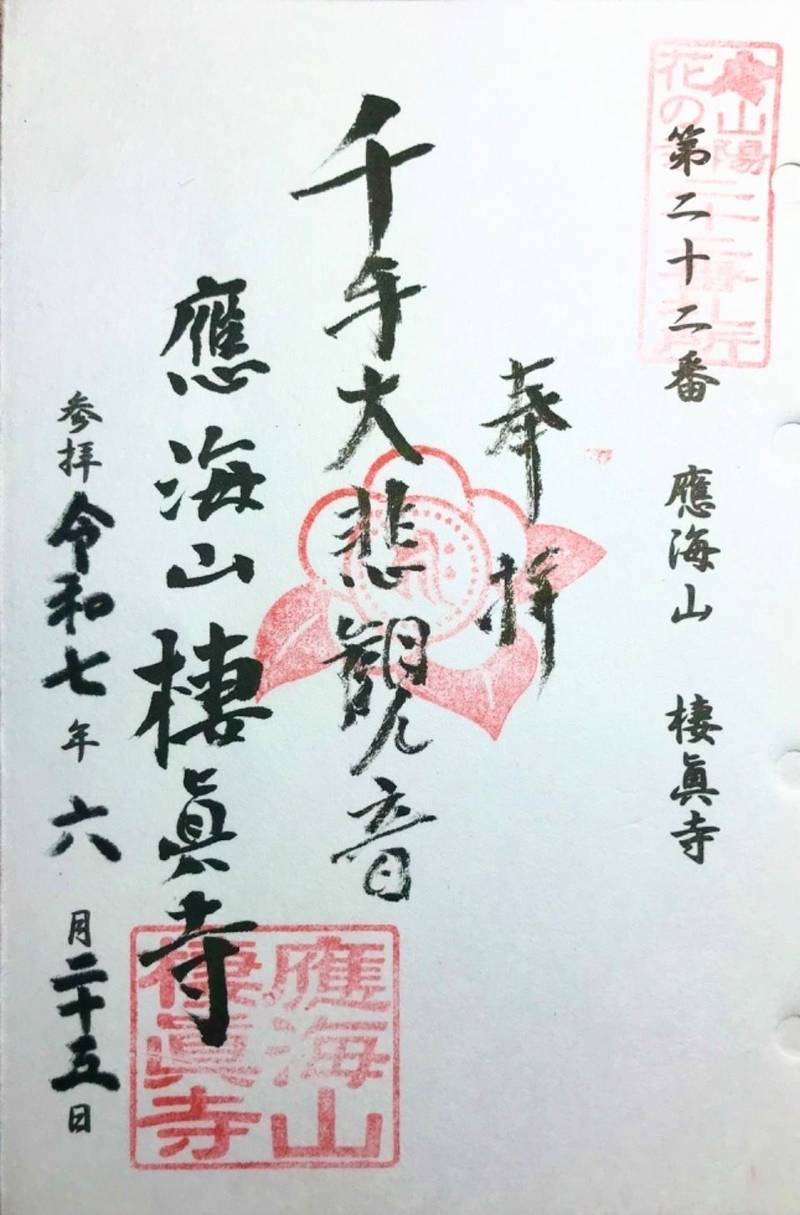 山陽
花の寺
二十番札所
第二十二番 應海山 棲眞寺
奉拝
千手大悲觀音
應海山棲眞寺
應海山
棲眞寺
参拝令和七年六月二十五日